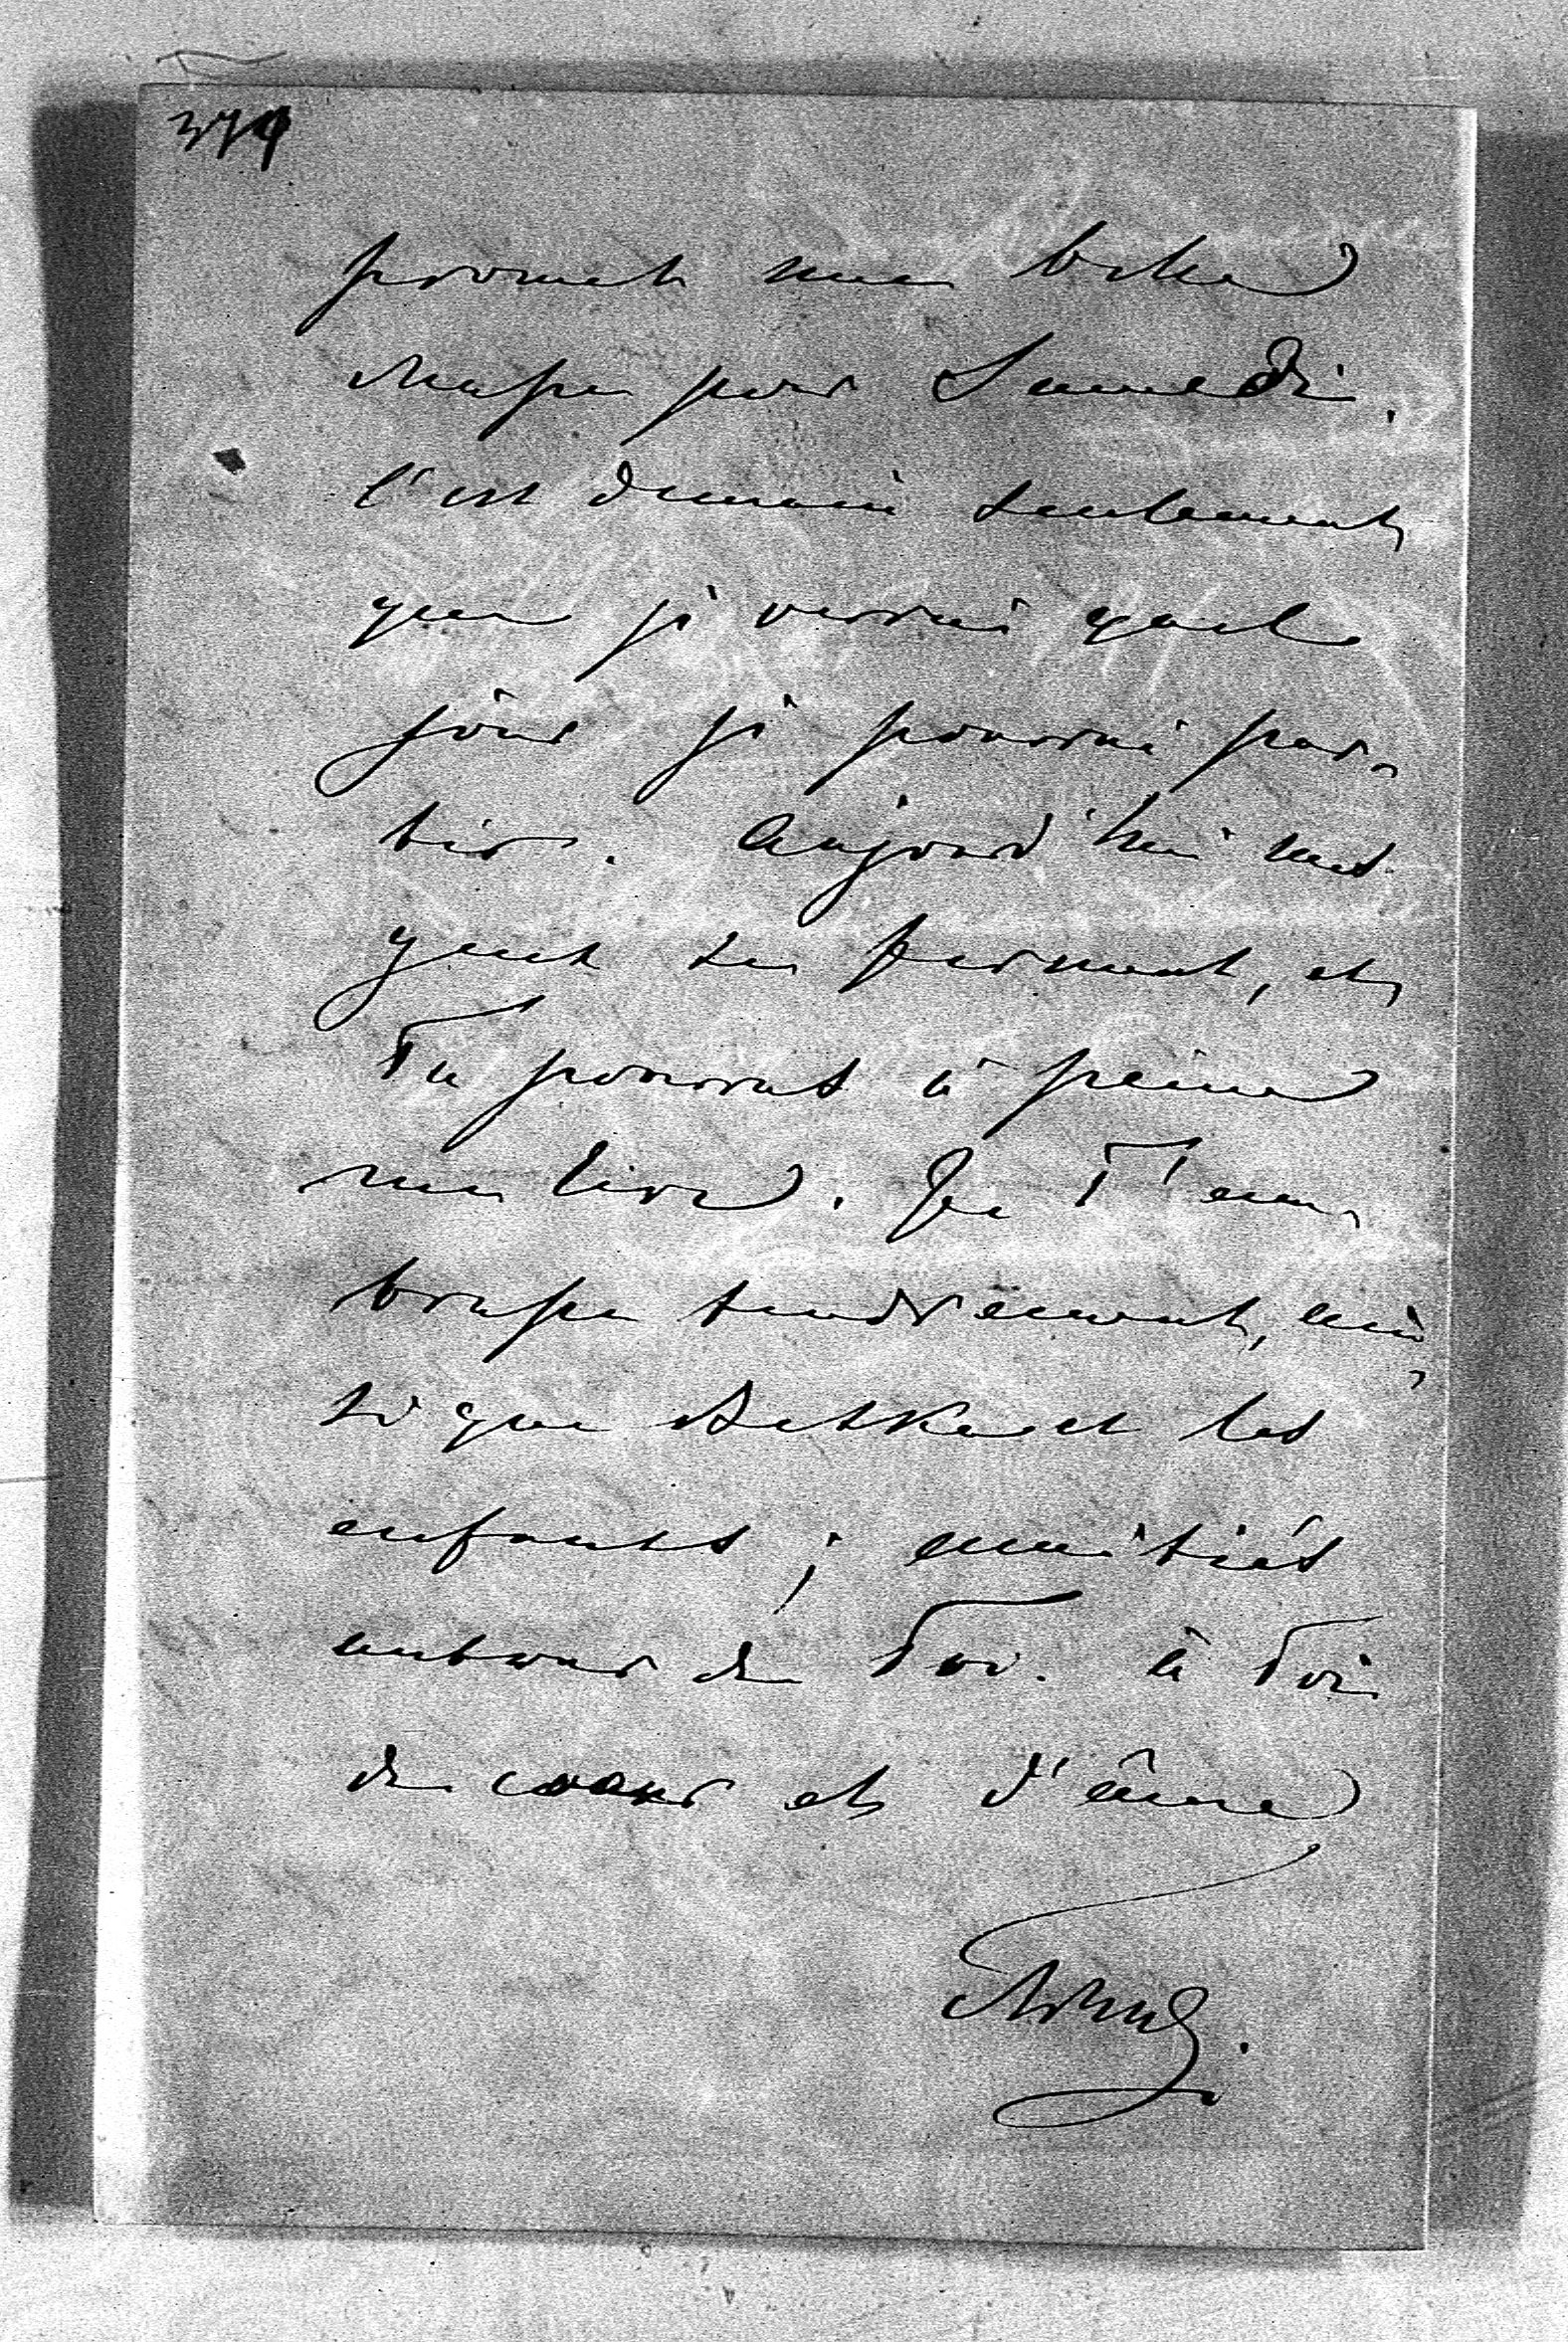 374
promet une belle
chasse pour Samedi.
C'est demain seulement
que je verrai quel
jour je pourrai par-
tir. Aujourd'hui mes
yeux se ferment, et
Tu pourras à peine
me lire. Je T'em-
brasse tendrement, ain-
si que et les
enfants ; amitiés
autour de Toi. à Toi
de coeur et d'âme